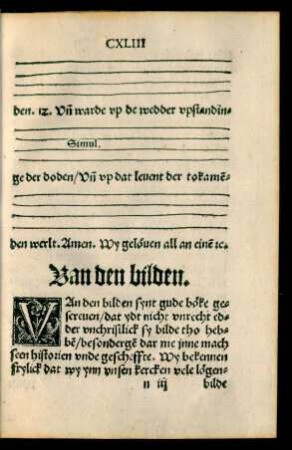 CXLIII
den. ıc. Vn̄ warde vp de wedder vpstandin⸗
Simul.
ge der doden/Vn̄ vp dat leuent der tokamē⸗
den werlt. Amen. Wy gelöuen all an einē ıc.
Van den bilden.
VAn den bilden synt gude böke ge⸗
screuen/dat ydt nicht vnrecht ed⸗
der vnchristlick sy bilde tho heb⸗
bē/besondergē dar me jnne mach
seen historien vnde gescheffte. Wy bekennen
frylick dat wy ynn vnsen kercken vele lögen⸗
n iij bilde